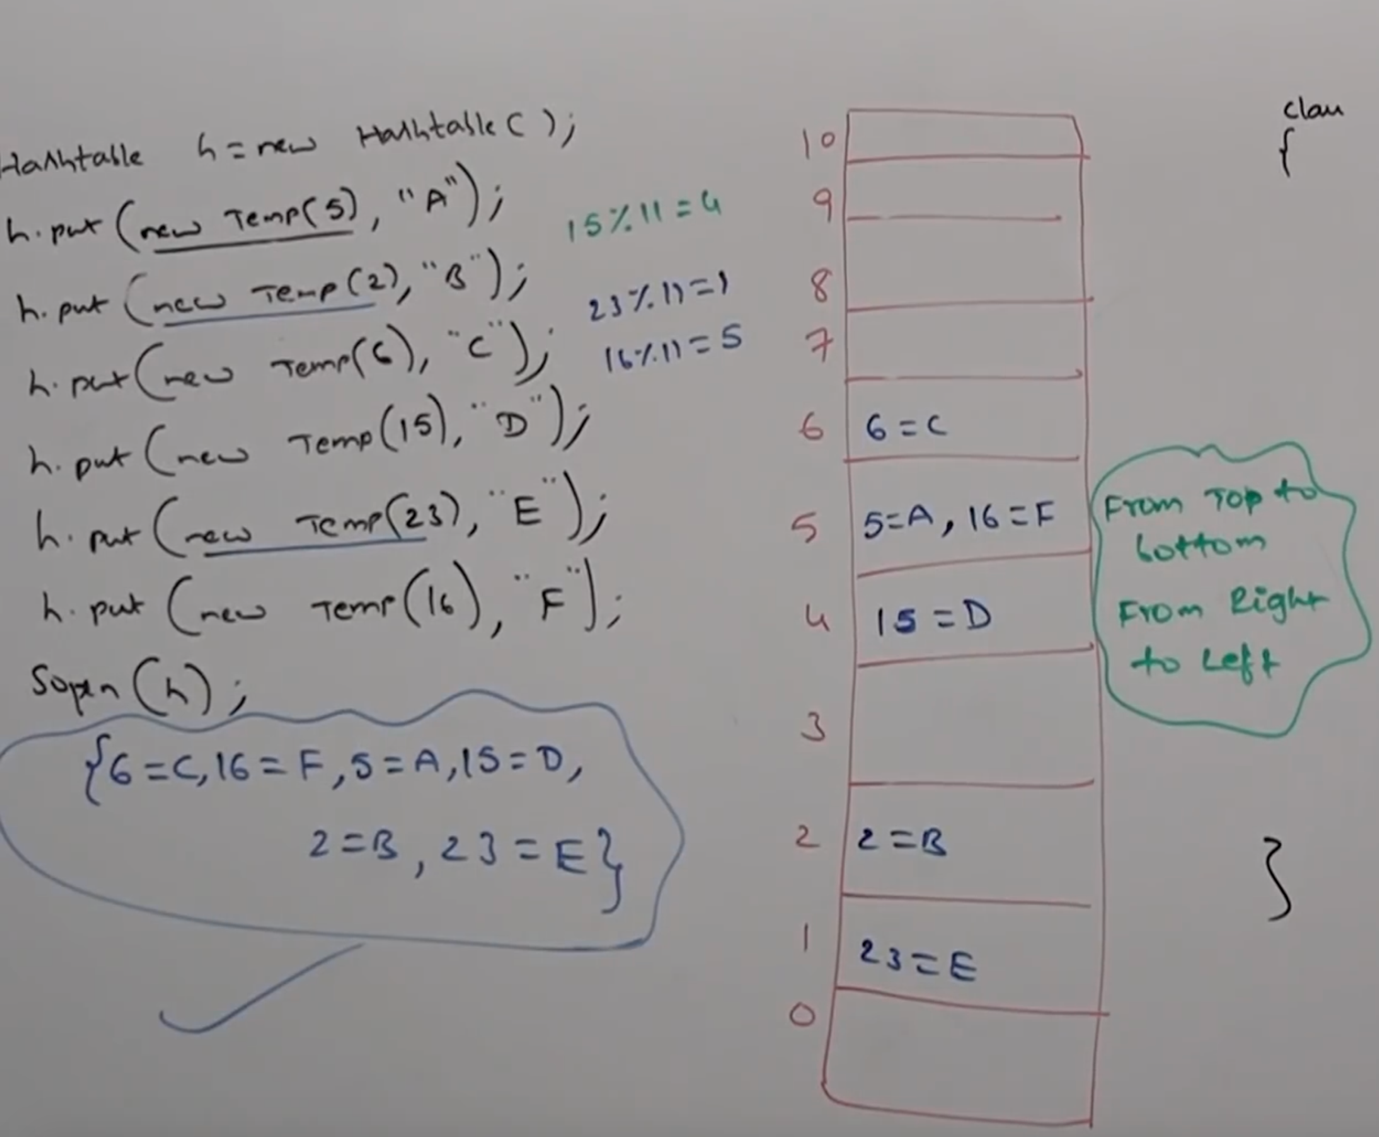 Hashtable h = new Hashtable( );
h.put (new Temp(5), "A");
h.put (new Temp(2), "B");
h.put (new Temp(6), "C");
h.put (new Temp(15), "D");
h.put (new Temp(23), "E");
h.put (new Temp(16), "F");
Sopln(h);
{6=C,16=F,5=A,15=D,
2=B, 23=E}
15%11=4
23%11=1
16%11=5
10
9
8
7
6 6=C
5 5=A, 16=F
4 15=D
3
2 2=B
1 23=E
0
From Top to
bottom
From Right
to Left
class
{
}